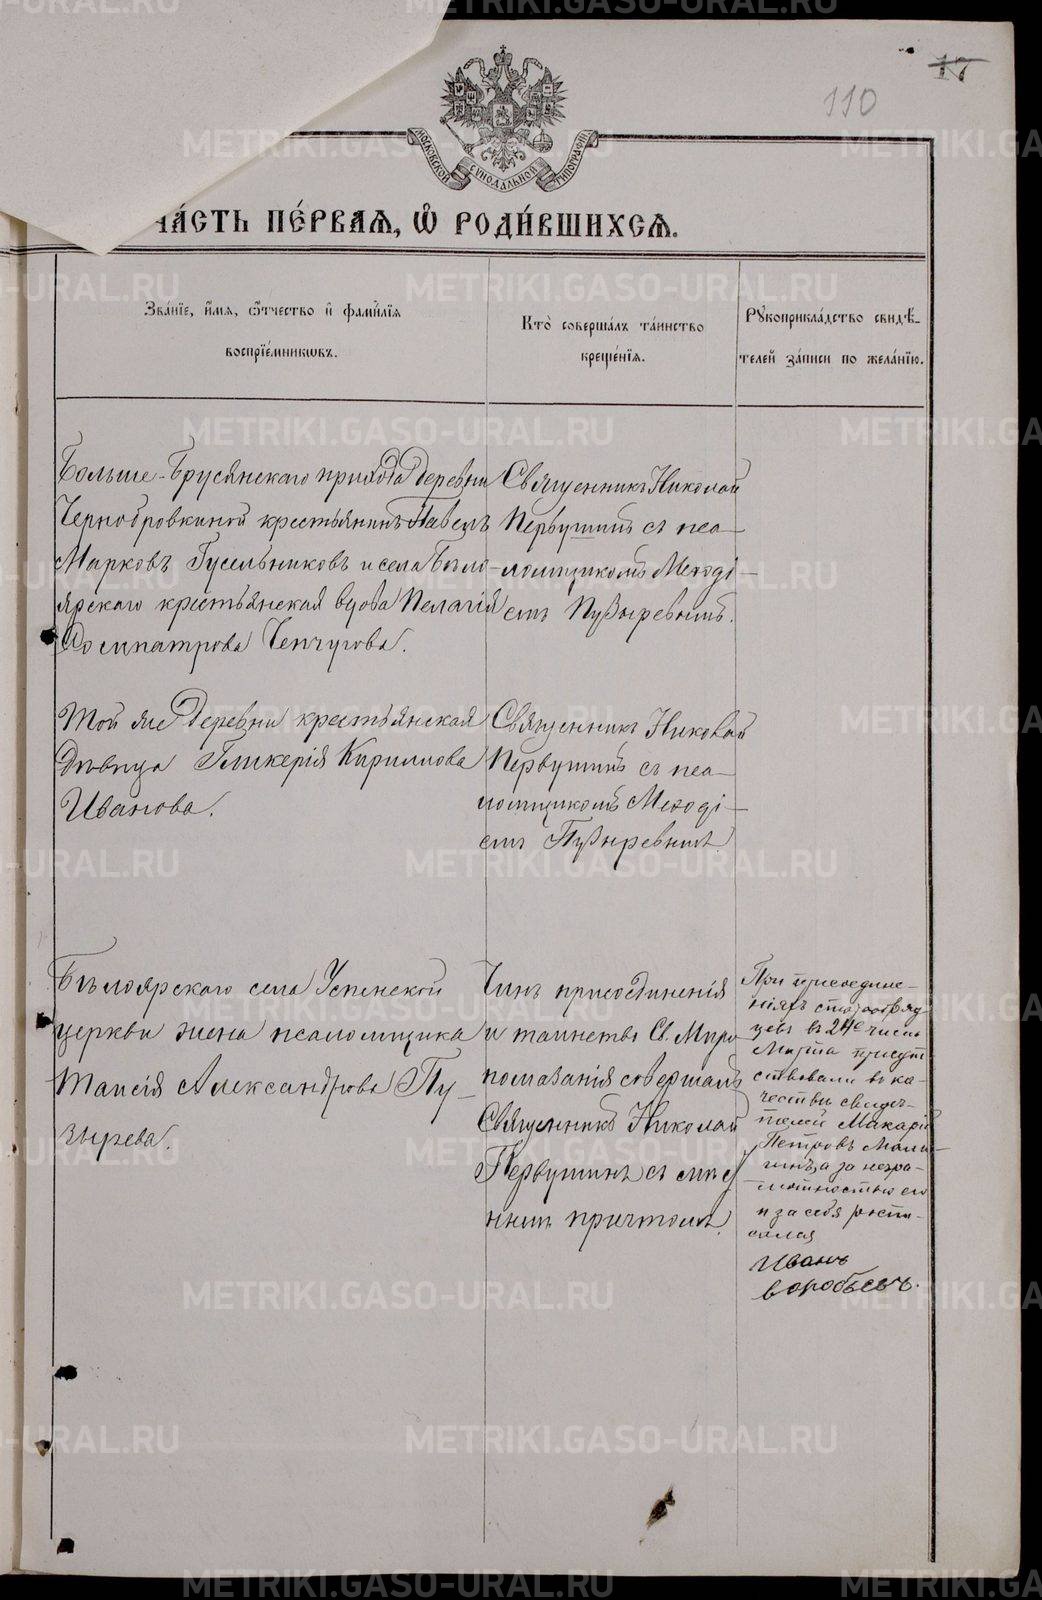 17
110
МОСКОВСКОЙ СѴНОДАЛЬНОЙ ТИПОГРАФІИ
ЧА́СТЬ ПЕ́РВАѦ, Ѽ РОДИ́ВШИХСѦ.
Зва́нїе, и҆́мѧ, ѻ҆́тчество и҆ фами́лїѧ
воспрїе́мникѡвъ.
Кто̀ соверша́лъ та́инство
креще́нїѧ.
Рꙋкоприкла́дство свидѣ́-
телей за́писи по жела́нїю.
Больше-Брусянскаго прихода деревни
Чернобровкиной крестьянинъ Павелъ
Марковъ Гусельниковъ и села Бѣло-
ярскаго крестьянская вдова Пелагія
Доментатрова Чепчугова.
Священникъ Николай
Первушинъ съ пса-
ломщикомъ Меѳоді-
емъ Пузыревымъ.
Той же деревни крестьянская
дѣвица Гликерія Кириллова
Иванова.
Священникъ Николай
Первушинъ съ пса-
ломщикомъ Меѳоді-
емъ Пузыревымъ.
Бѣлоярскаго села Успенской
церкви жена псаломщика
Таисія Александрова Пу-
зырева.
Чинъ присоединенія
и таинство Св. Миро
помазанія совершалъ
Священникъ Николай
Первушинъ съ мѣст
нымъ причтомъ.
При присоедине-
ніяхъ старообряд-
цевъ въ 24е число
Марта присут
ствовали въ ка-
чествѣ свидѣ-
телей Макарій
Петровъ
а за негра-
мотностью его
и за себя роспи-
сался
Иванъ
Воробьевъ.
METRIKI.GASO-URAL.RU